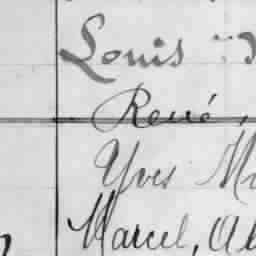 Louis
René,
Yves
Marcel, Al